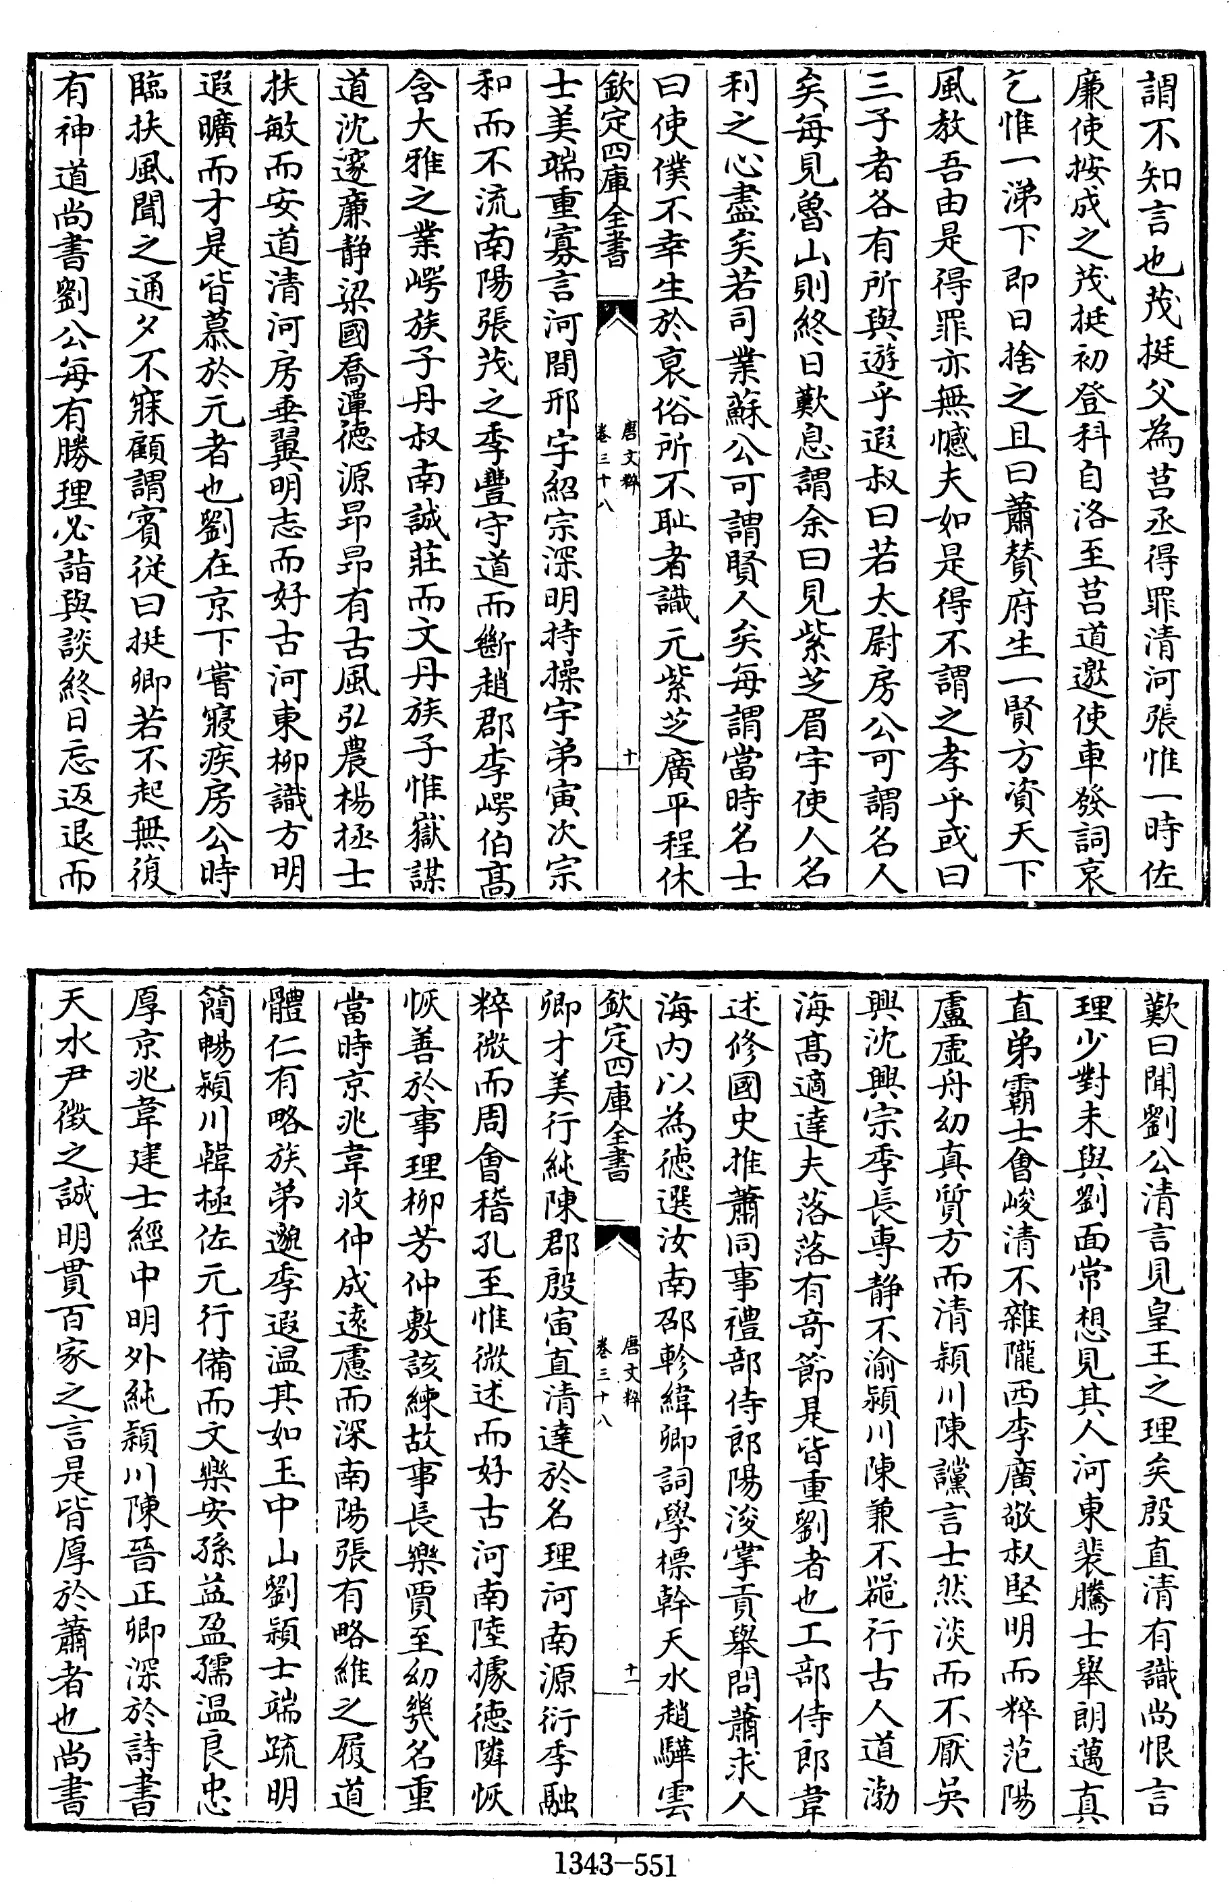 謂不知言也茂挺父為莒丞得罪清河張惟一時佐
廉使按成之茂挺初登科自洛至莒道邀使車發詞哀
乞惟一涕下即日捨之且曰蕭贊府生一賢方資天下
風教吾由是得罪亦無憾夫如是得不謂之孝乎或曰
三子者各有所與遊乎遐叔曰若太尉房公可謂名人
矣每見魯山則終日歎息謂余曰見紫芝眉宇使人名
利之心盡矣若司業蘇公可謂賢人矣每謂當時名士
曰使僕不幸生於衰俗所不恥者識元紫芝廣平程休
欽定四庫全書
唐文粹
卷三十八
十
士美端重寡言河間邢宇紹宗深明持操宇弟寅次宗
和而不流南陽張茂之季豐守道而斷趙郡李崿伯高
含大雅之業崿族子丹叔南誠莊而文丹族子惟嶽謀
道沈邃廉静梁國喬潭德源昂昂有古風弘農楊拯士
扶敏而安道清河房垂翼明志而好古河東柳識方明
遐曠而才是皆慕於元者也劉在京下嘗寢疾房公時
臨扶風聞之通夕不寐顧謂賓從曰挺卿若不起無復
有神道尚書劉公每有勝理必詣與談終日忘返退而
歎曰聞劉公清言見皇王之理矣殷直清有識尚恨言
理少對未與劉面常想見其人河東裴騰士舉朗邁真
直弟霸士會峻清不雜隴西李廣敬叔堅明而粹范陽
盧虛舟幼真質方而清潁川陳讜言士然淡而不厭吳
興沈興宗季長專静不渝潁川陳兼不器行古人道渤
海高適達夫落落有奇節是皆重劉者也工部侍郎韋
述修國史推蕭同事禮部侍郎陽浚掌貢舉問蕭求人
海内以為德選汝南邵軫緯卿詞學標幹天水趙驊雲
欽定四庫全書
唐文粹
卷三十八
十一
卿才美行純陳郡殷寅直清達於名理河南源衍季融
粹微而周會稽孔至惟微述而好古河南陸據德隣恢
恢善於事理柳芳仲敷該練故事長樂賈至幼幾名重
當時京兆韋收仲成遠慮而深南陽張有略維之履道
體仁有略族弟邈季遐溫其如玉中山劉潁士端疏明
簡暢潁川韓極佐元行備而文樂安孫益盈孺溫良忠
厚京兆韋建士經中明外純潁川陳晉正卿深於詩書
天水尹徵之誠明貫百家之言是皆厚於蕭者也尚書
1343-551